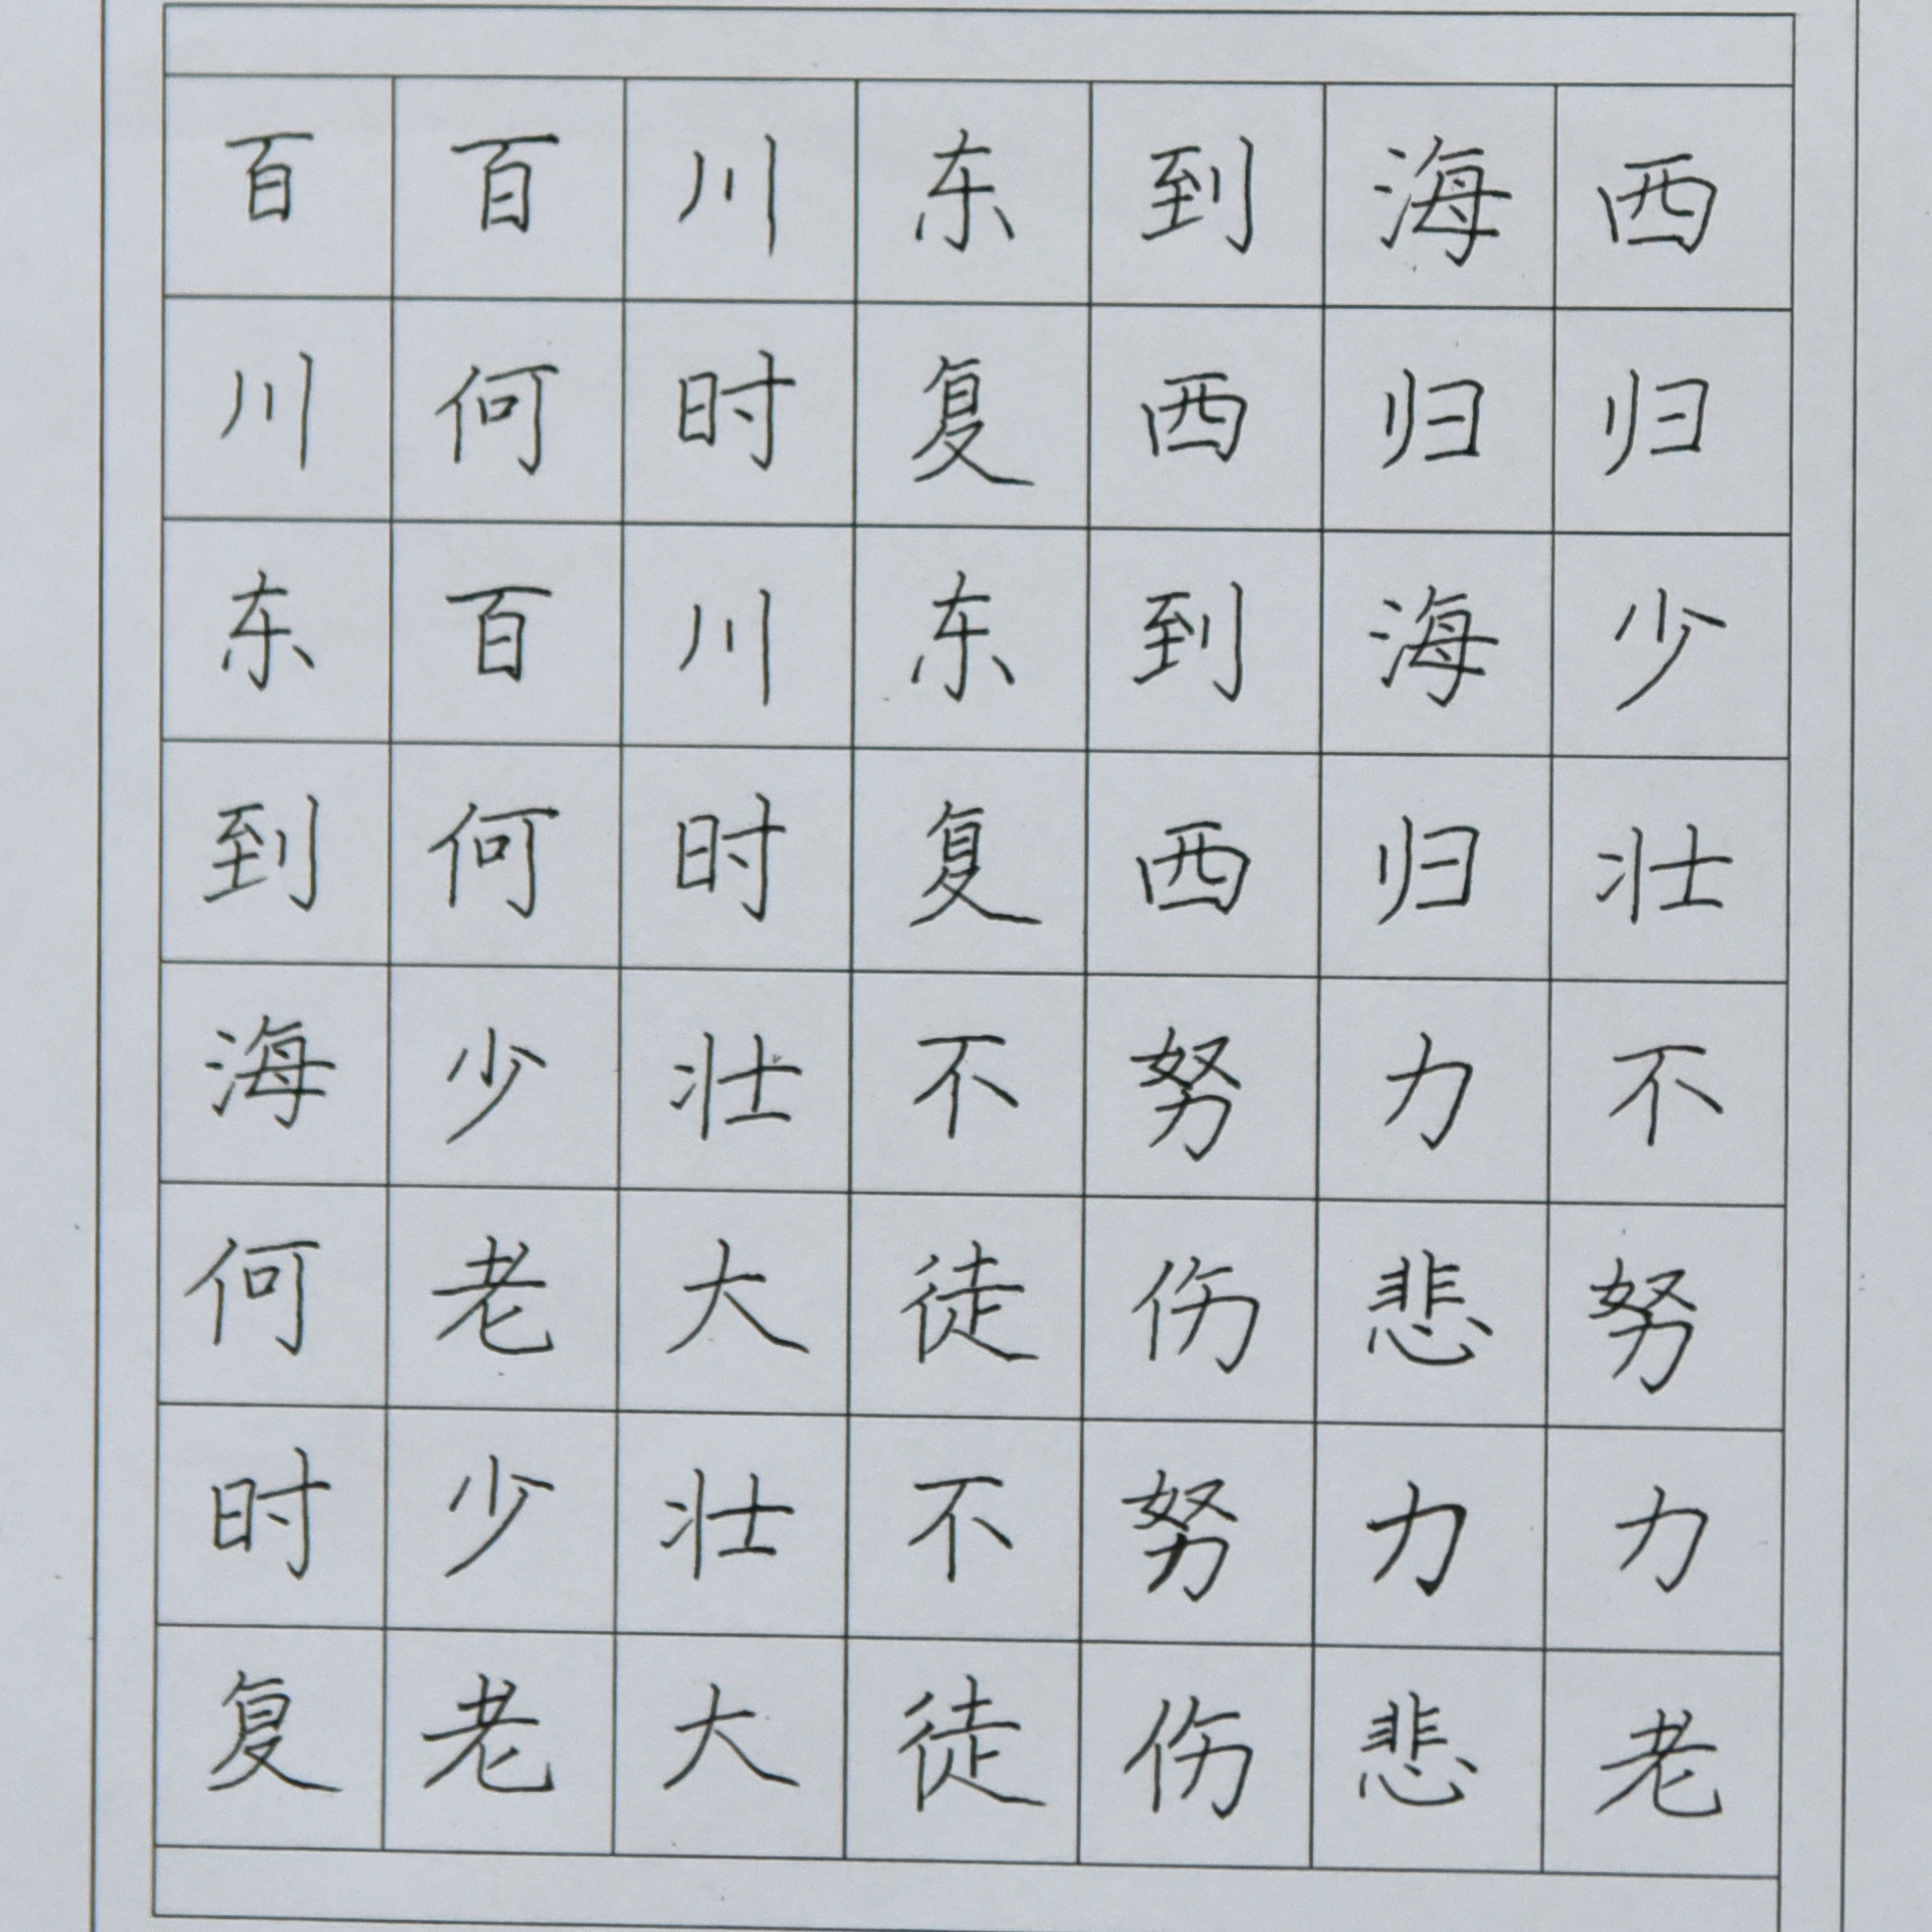 百百川东到海西
川何时复西归归
东百川东到海少
到何时复西归壮
海少壮不努力不
何老大徒伤悲努
时少壮不努力力
复老大徒伤悲老